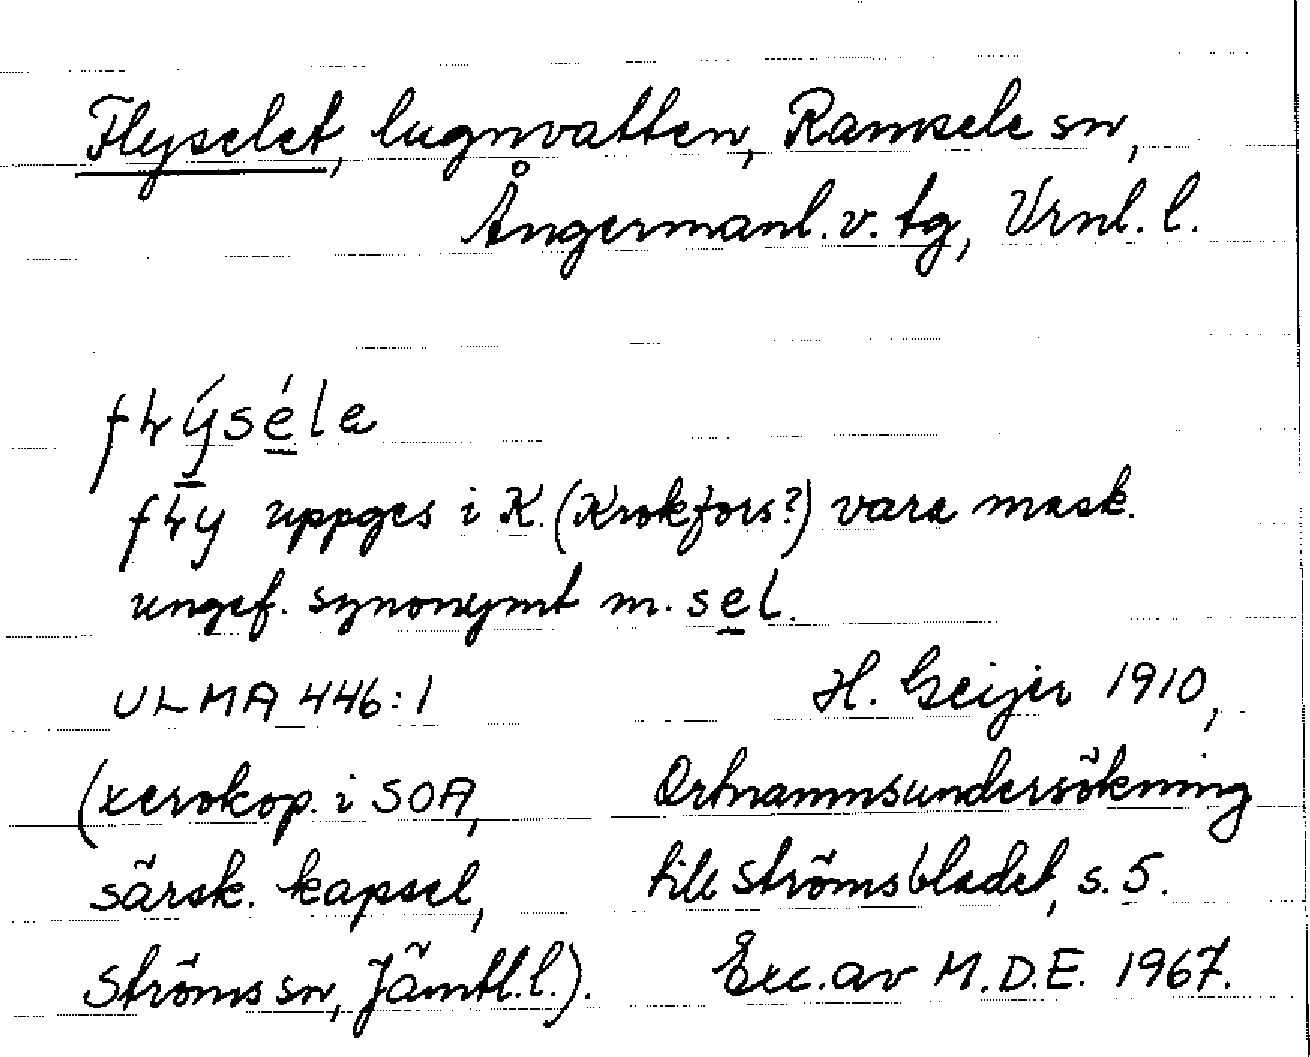 Flyselet, lugnvatten, Ramsele sn,
Ångermanl. v. tg, Vrnl. l.
flýséle
fly uppges i K. (Krokfors?) vara mask.
ungef. synonymt m. sel.
ULMA 446:1
H. Geijer 1910,
(xerokop. i SOA,
Ortnamnsundersökning
särsk. kapsel,
till Strömsbladet, s. 5.
Ströms sn, Jämtl. l.).
Exc. av M.D.E. 1967.